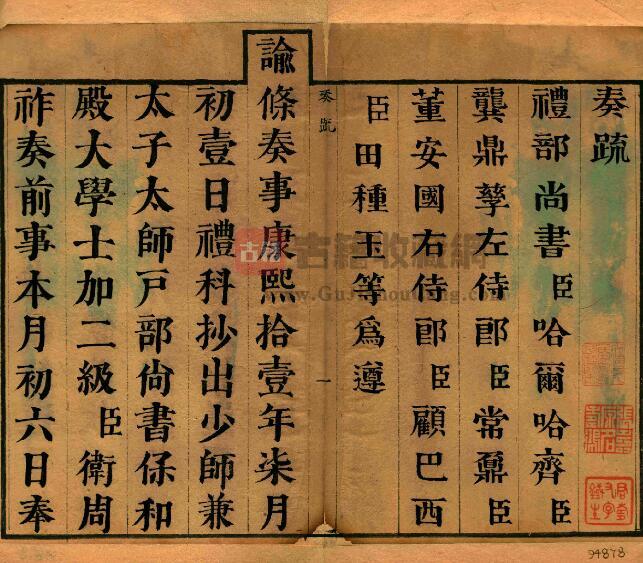 奏疏
禮部尚書臣哈爾哈齊臣
龔鼎孳左侍郎臣常鼐臣
董安國右侍郎臣顧巴西
臣田種玉等爲遵
奏疏
一
諭條奏事康熙拾壹年柒月
初壹日禮科抄出少師兼
太子太師戶部尙書保和
殿大學士加二級臣衛周
祚奏前事本月初六日奉
古籍收藏網
94878